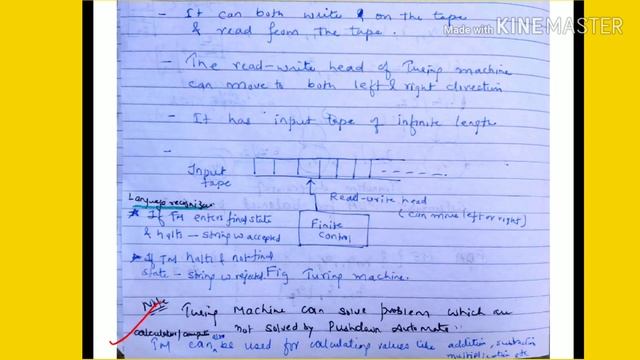 Made with KINEMASTER
- It can both write on the tape
& read from the tape.
- The read-write head of Turing machine
can move to both left & right direction
- It has input tape of infinite length
-
Input
tape
Read-write head
(can move left or right)
Finite
Control
Language recognizer
* If TM enters final state
& halts - string w accepted
* If TM halts & not final
state - string w rejected
Fig Turing machine.
Note
Turing Machine can solve problem which are
not solved by Pushdown Automata.
TM can also be used for calculating values like addition, subtraction
multiplication etc